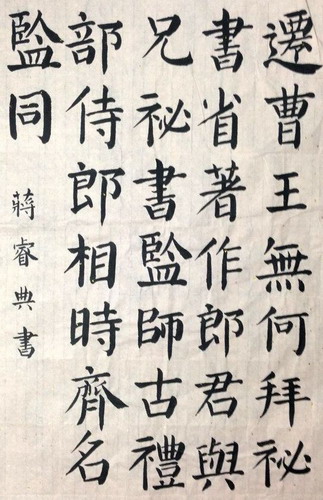 遷曹王無何拜祕
書省著作郎君與
兄祕書監師古禮
部侍郎相時齊名
監同
蔣睿典書